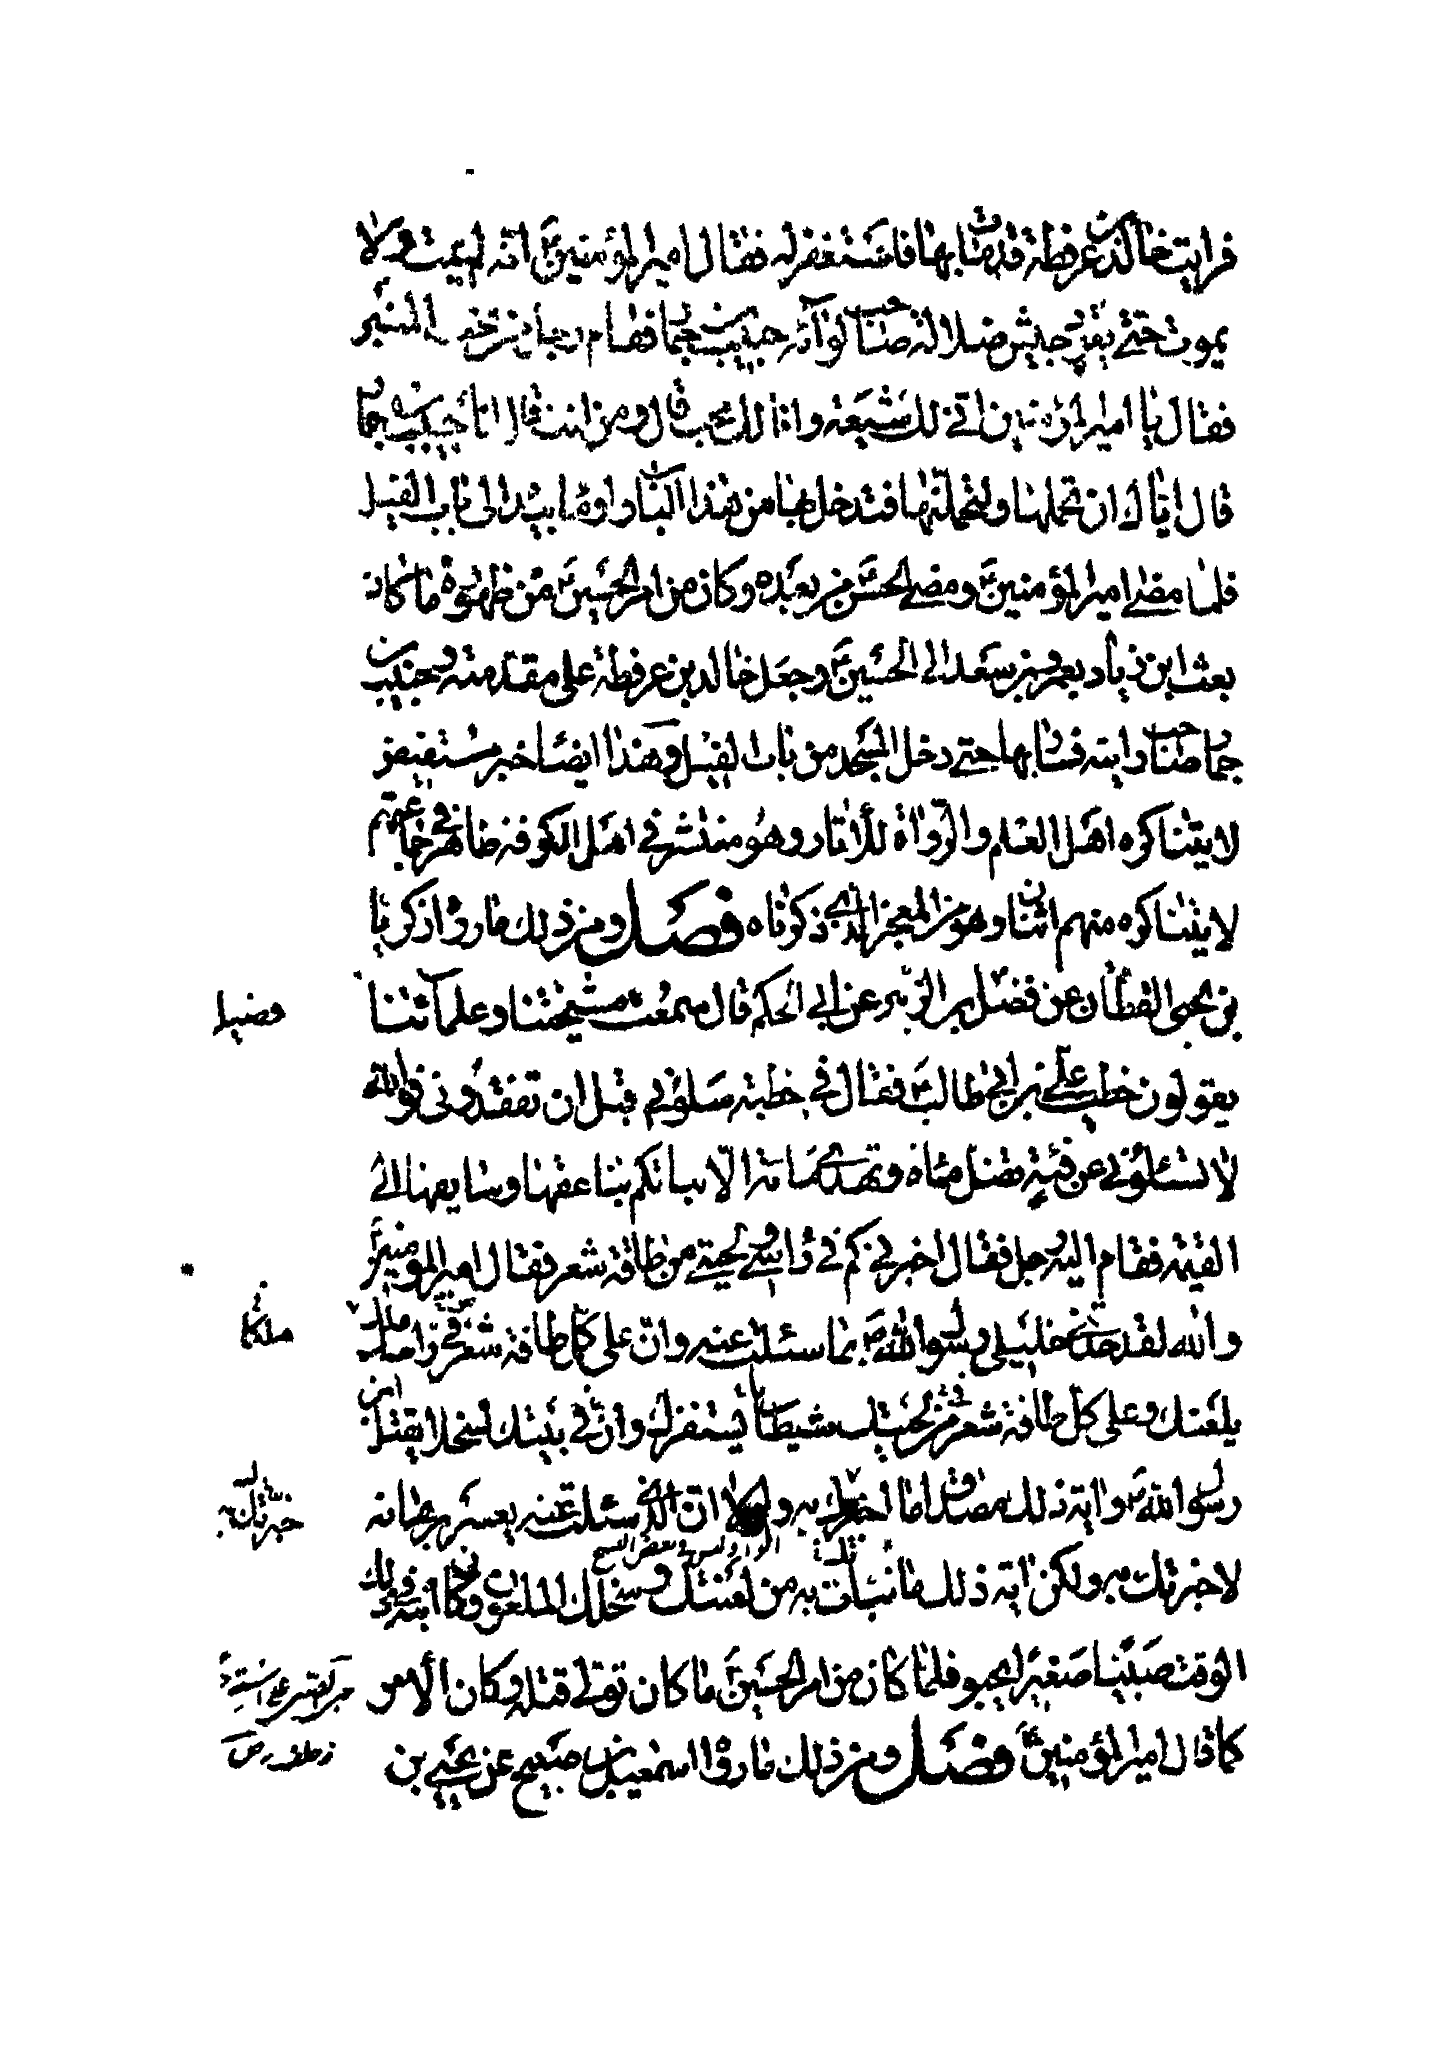 فرايت خالد بن عرفطة قد مات بها فاستغفر له فقال امير المؤمنين ع انه لم يمت ولا
يموت حتى يقود جيش ضلالة صاحب لوائه حبيب بن جماز فقام رجل من تحت المنبر
فقال يا امير المؤمنين اني لك شيعة وانا لك محب قال ومن انت قال انا حبيب بن جماز
قال اياك ان تحملها ولتحملنها فتدخل بها من هذا الباب واومأ بيده الى باب الفيل
فلما مضى امير المؤمنين ع ومضى الحسن ع من بعده وكان من امر الحسين ع من ظهوره ما كان
بعث ابن زياد بعمرو بن سعد الى الحسين ع وجعل خالد بن عرفطة على مقدمته وحبيب بن
جماز صاحب رايته فسار بها حتى دخل المسجد من باب الفيل وهذا ايضا خبر مستفيض
لا يتناكره اهل العلم والرواة للأثار وهو منتشر في اهل الكوفة ظاهر في جماعتهم
لا يتناكره منهم اثنان وهو من المعجز الذي ذكرناه فصل ومن ذلك ما رواه زكريا
بن يحيى القطان عن فضل بن الزبير عن ابي الحكم قال سمعت مشيختنا وعلمائنا
فضيل
يقولون خطب علي بن ابي طالب ع فقال في خطبته سلوني قبل ان تفقدوني فوالله
لا تسئلوني عن فئة تضل مائة وتهدي مائة الا نبأتكم بناعقها وسايقها الى
القيمة فقام اليه رجل فقال اخبرني كم في راسي ولحيتي من طاقة شعر فقال امير المؤمنين ع
والله لقد حدثني خليلي رسول الله ص بما سئلت عنه وان على كل طاقة شعر في راسك ملك
ملكا
يلعنك وعلى كل طاقة شعر من لحيتك شيطان يستفزك وان في بيتك لسخلا يقتل ابن
رسول الله ص واية ذلك مصداق ما اخبرتك به ولولا ان الذي سئلت عنه يعسر برهانه
خبرتك به
لاخبرتك به ولكن اية ذلك ما نبأت به من لعنتك وسخلك الملعون وكان ابنه في ذلك
الوقت صبيا صغيرا يحبو فلما كان من امر الحسين ع ما كان تولى قتله وكان الامر
كما قال امير المؤمنين ع فصل ومن ذلك ما رواه اسمعيل بن صبيح عن يحيى بن